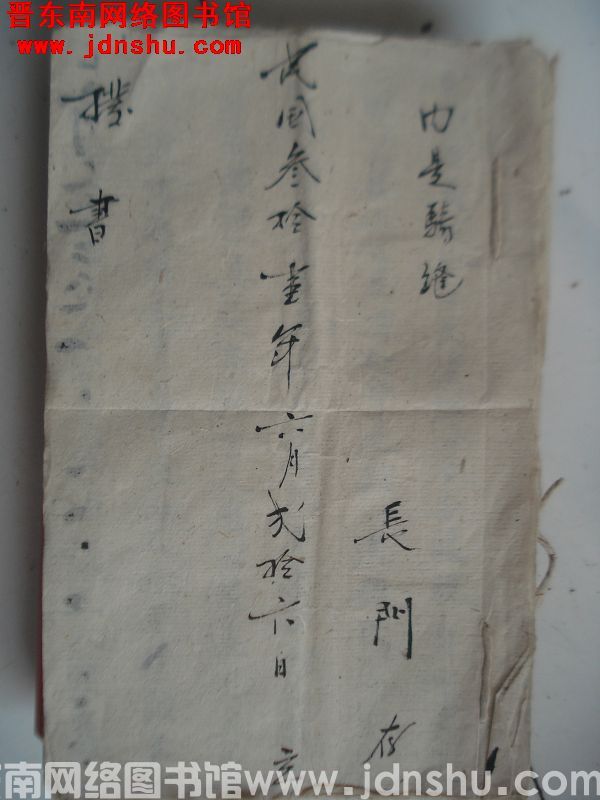 晋东南网络图书馆
www.jdnshu.com
内是騎縫
長門 存
民国叁拾壹年六月弍拾六日 立
撥書
晋东南网络图书馆www.jdnshu.com